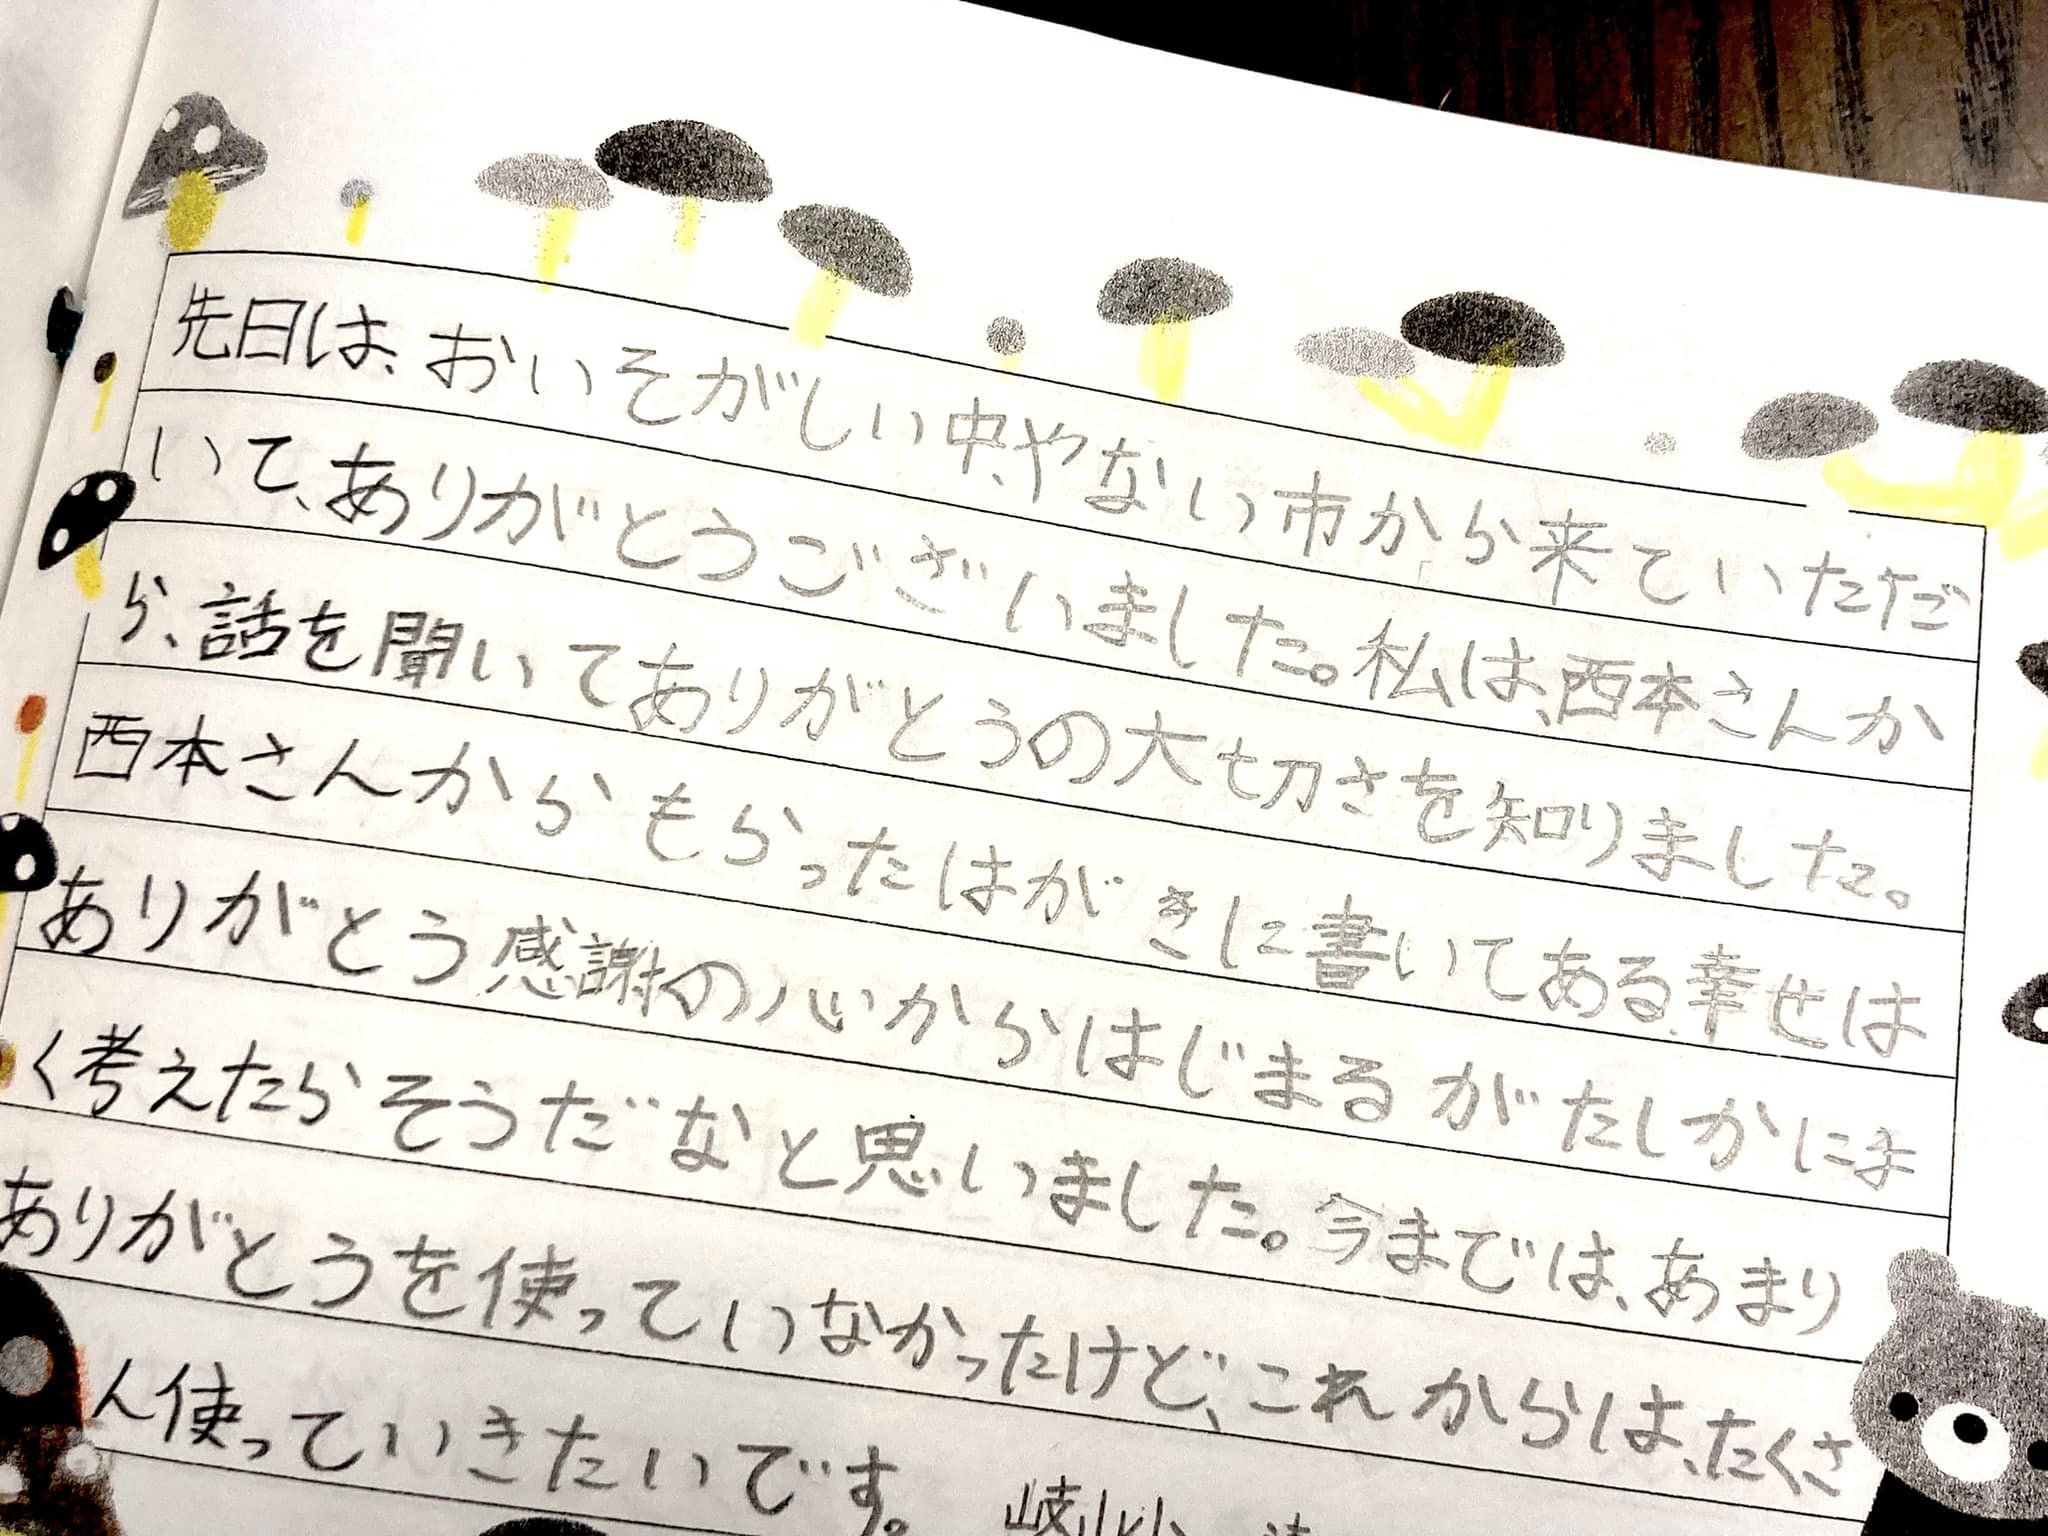 先日は、おいそがしい中、やない市から来ていただ
いて、ありがとうございました。私は、西本さんか
ら、話を聞いてありがとうの大切さを知りました。
西本さんからもらったはがきに書いてある、幸せは
ありがとう感謝の心からはじまるがたしかによ
く考えたらそうだなと思いました。今までは、あまり
ありがとうを使っていなかったけど、これからは、たくさ
ん使っていきたいです。